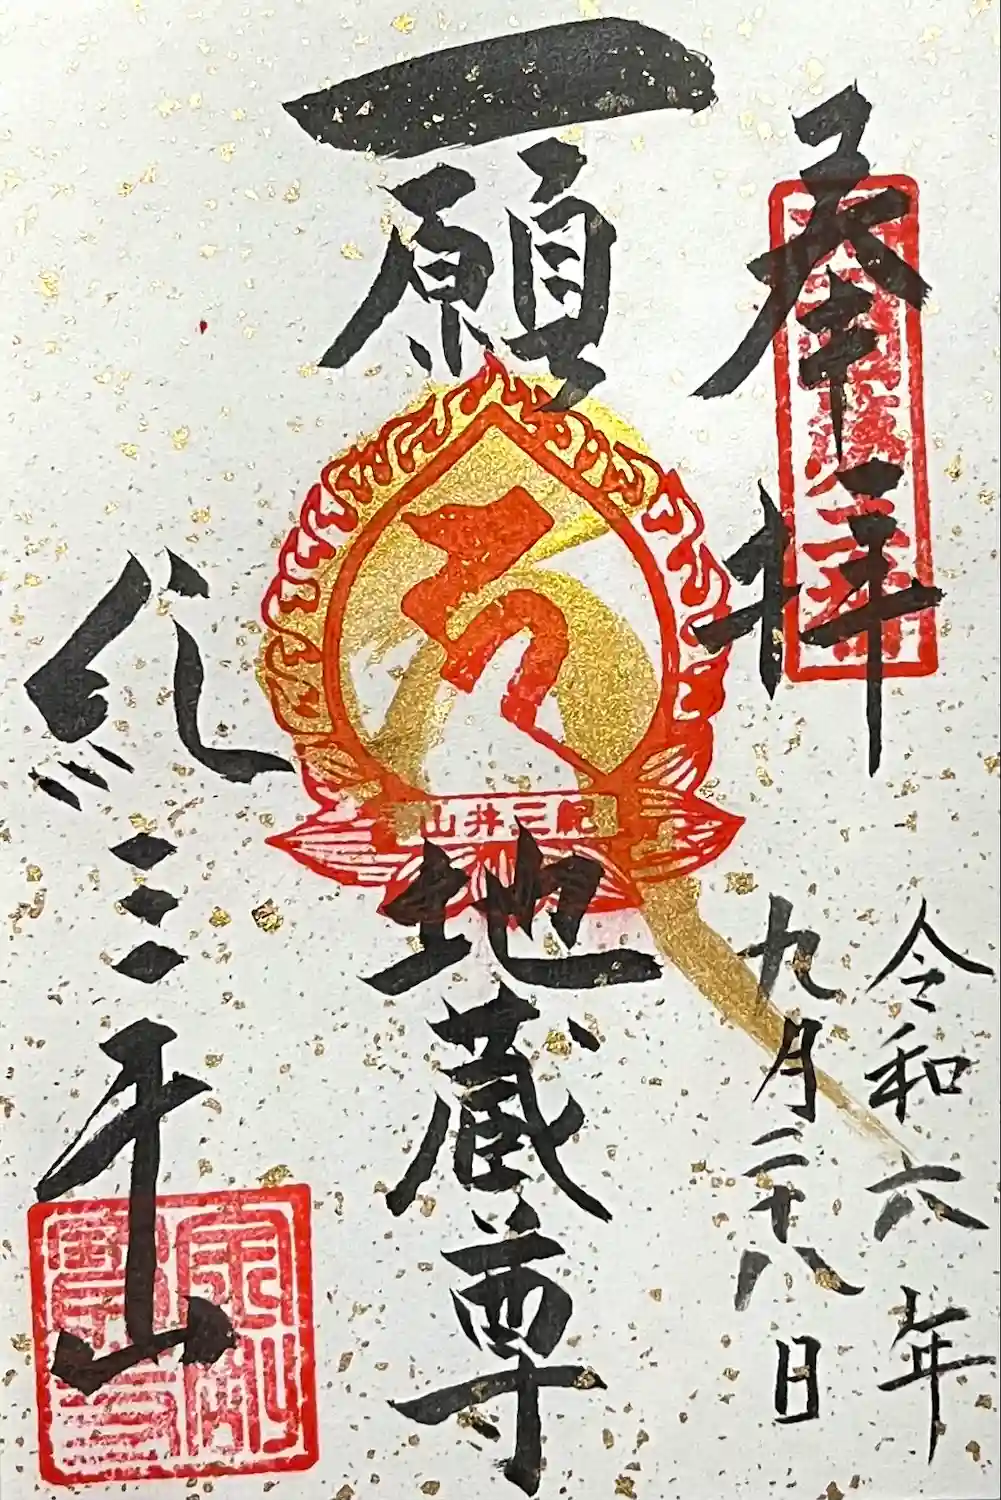 奉拝
令和六年
九月二十八日
一願
山井三紀
地蔵尊
紀三井山
金剛
寶寺